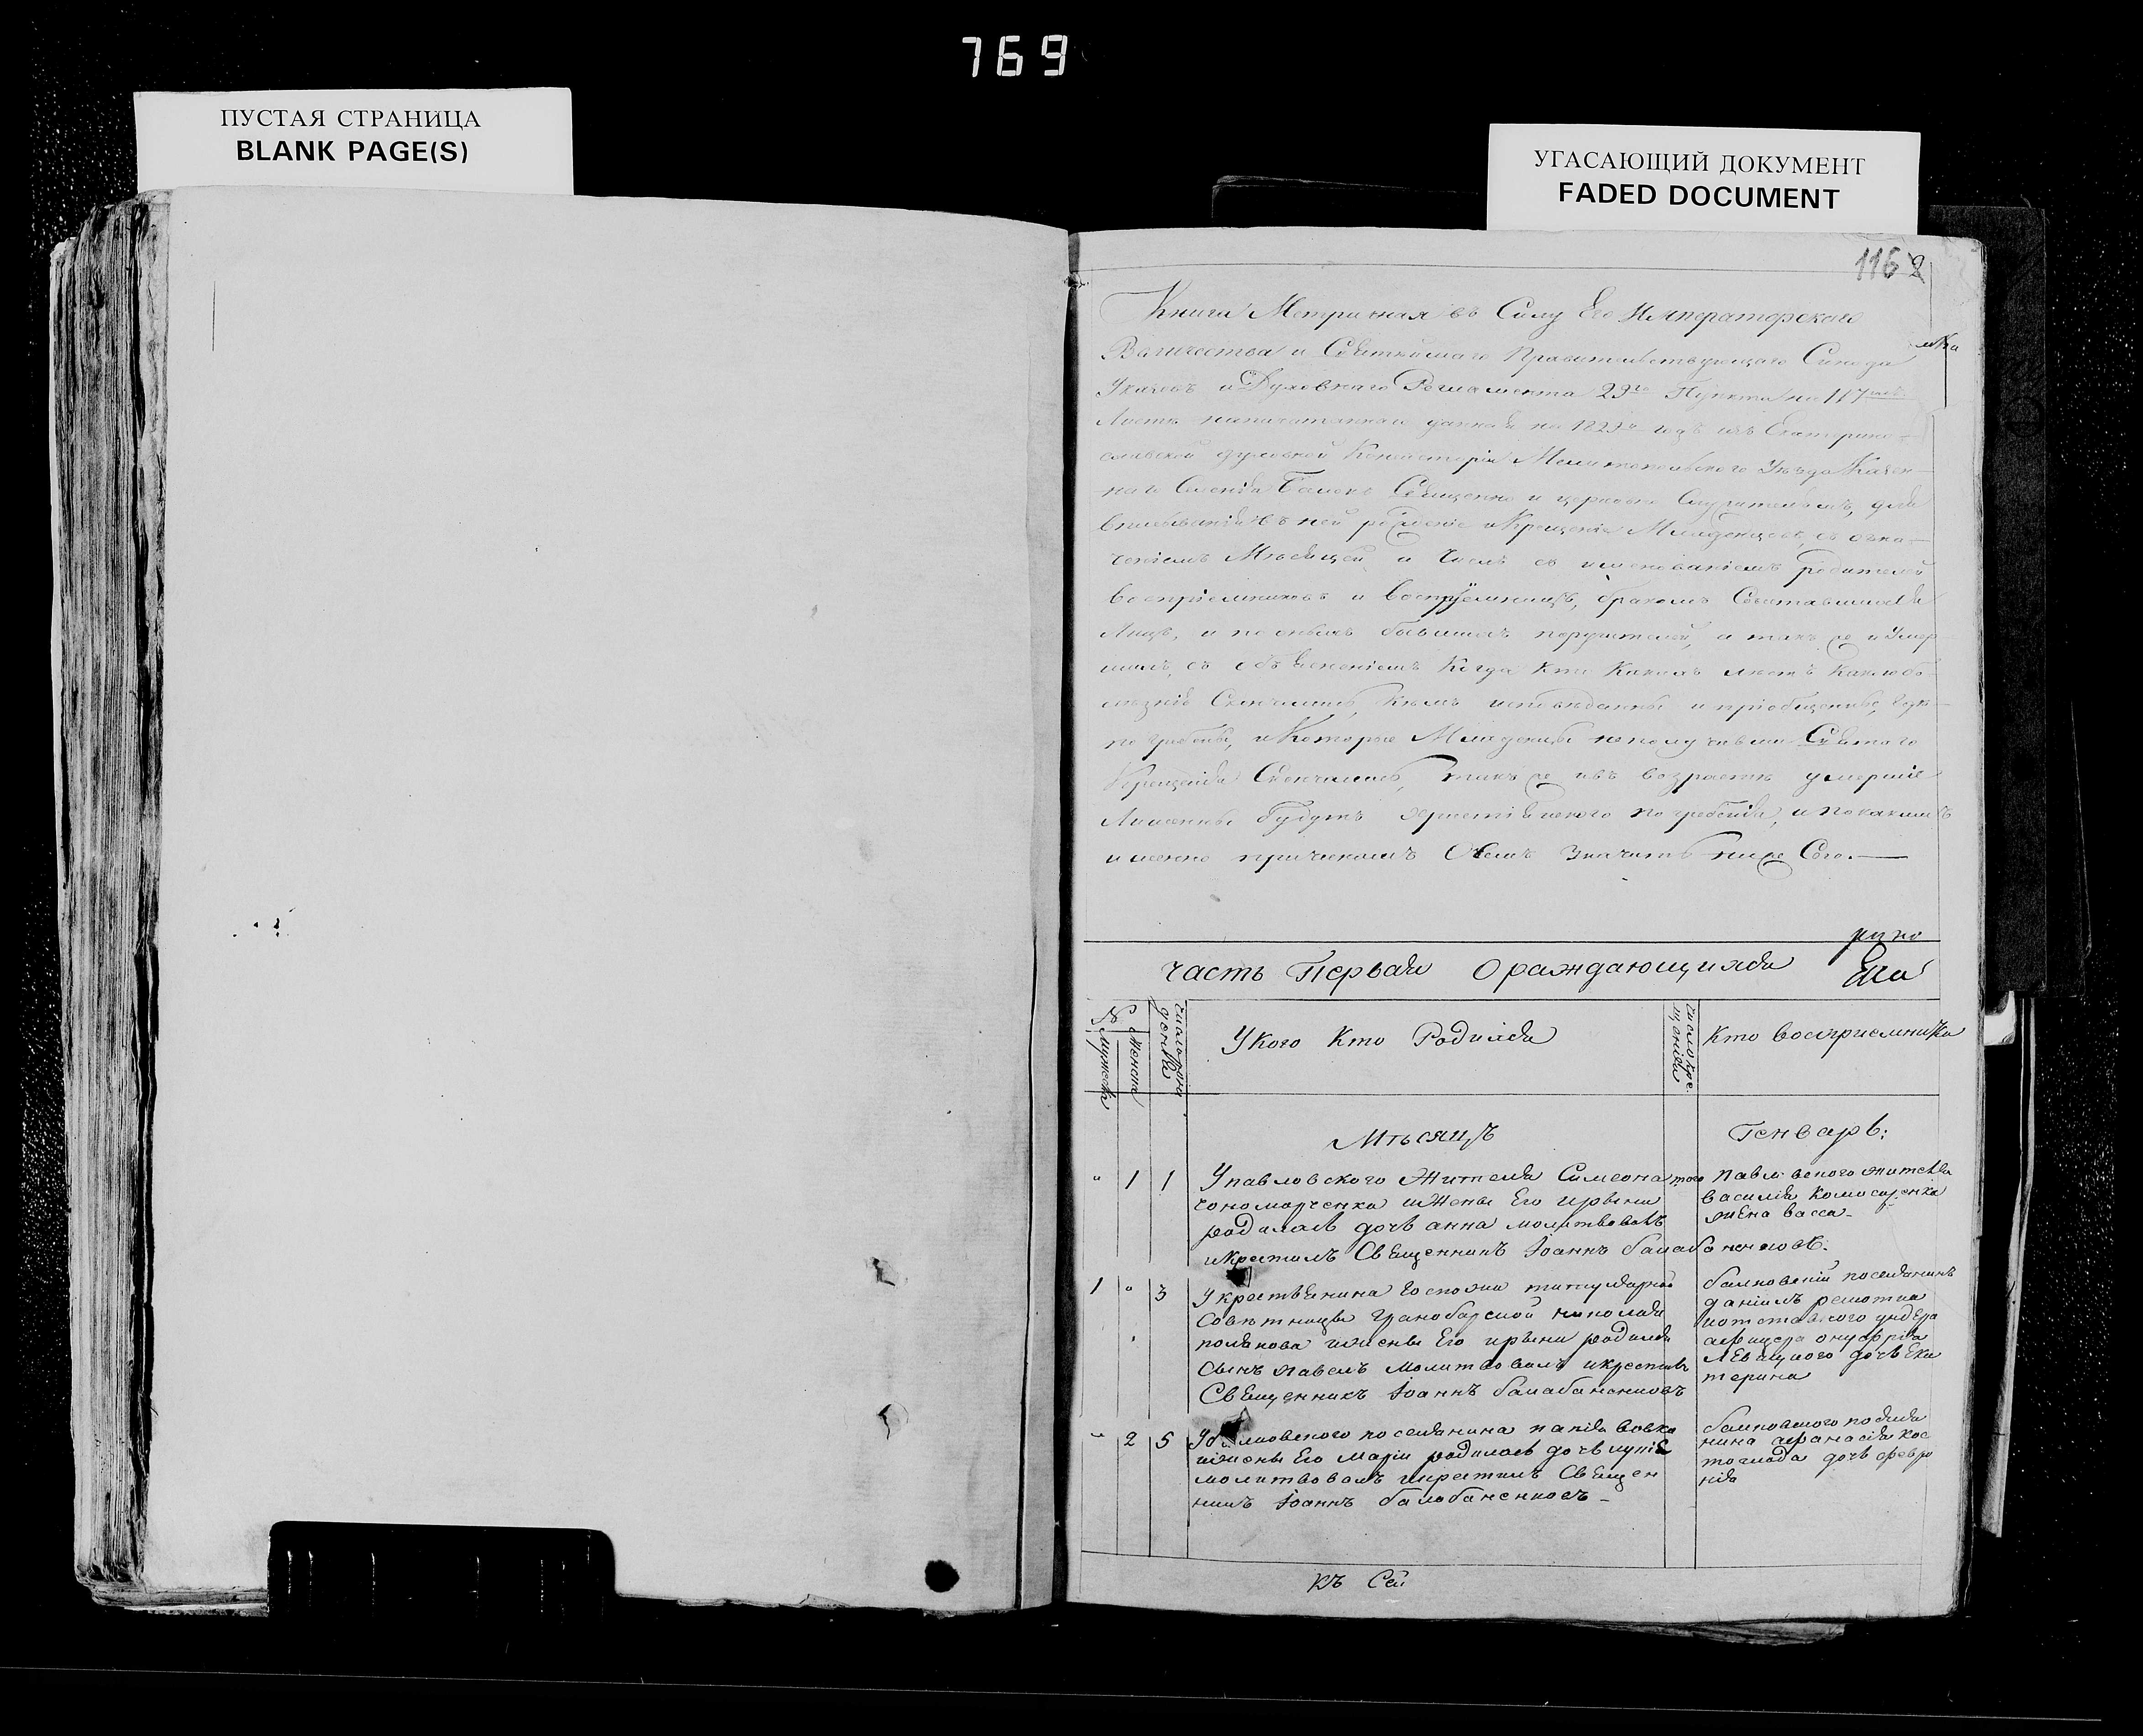 769
ПУСТАЯ СТРАНИЦА
BLANK PAGE(S)
УГАСАЮЩИЙ ДОКУМЕНТ
FADED DOCUMENT
1168
Книга Метричная въ Силу Его Императорскаго
Величества и Святейшаго Правительствующаго Синода
Указовъ и Духовнаго Регламента 29го Пункта на 117
Листе напечатаннаго данная на 1829й годъ изъ Екатерино-
славской духовной Консисторіи Мелитопольского Уезда Казен-
наго Селенія Балокъ Священно и церковно Служителямъ, для
вписыванія въ ней рожденіе и Крещеніе Младенцовъ, съ озна-
ченіемъ Мѣсяцей и Чиселъ съ именованіемъ родителей
воспріемниковъ и воспріемницъ, бракомъ Сочетавшихся
Лицъ, и по онымъ бывшихъ поручителей, а такъ же и Умер
шихъ, съ объясненіемъ Когда Кто Какихъ летъ Какою бо-
лезнію Скончались, Кемъ исповѣданны и пріобщенны, где
погребены, и Которые Младенцы неполучивши Святаго
Крещенія Скончались, такъ же и въ возрасте умершіе
Лишенны будутъ христіянского погребенія, и по какимъ
именно причинамъ О Семъ Значитъ ниже Сего.—
Часть Первая О раждающихся
№
Мужеска
Женска
Число рож
денія
У кого Кто Родился
Число кре
щенія
Кто восприемника
Мѣсяцъ Генварь:
" 1 1 У павловского Жителя Симеона того
чономорченка и Жены Его ирины
родилась дочь анна молитвовалъ
и Крестилъ Священникъ Іоаннъ балабаненковъ.
павловского жителя
василія комисаренка
жена васса-
1 " 3 У крестьянина госпожи титулярной
Советницы Гранобарской николая
полякова и жены Его ирины родился
Сынъ павелъ молитвовалъ и крестилъ
Священникъ Іоаннъ балабаненковъ
балковский поселянинъ
даніилъ
и отставного ундера
афицера онуфрія
дочь Ека
терина
" 2 5 У балковского поселянина
и жены Его Маріи родилась дочь
молитвовалъ и крестилъ Священ
никъ Іоаннъ балабаненковъ-
балковского поселя
нина афанасія кос
дочь февро
нія
Къ Сей